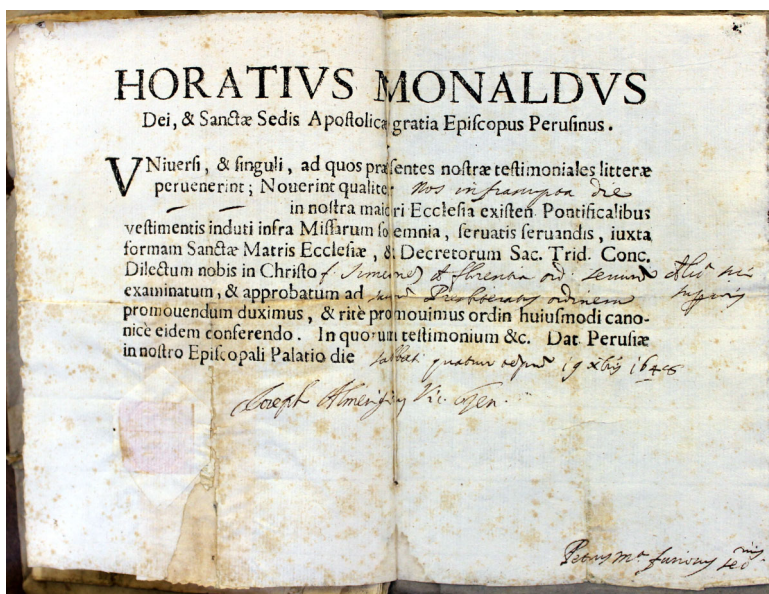 HORATIVS MONALDVS
Dei, & Sanctæ Sedis Apostolica gratia Episcopus Perusinus.
VNiuersi, & singuli, ad quos præsentes nostræ testimoniales litteræ
peruenerint; Nouerint qualiter nos infrascripta die
in nostra maiori Ecclesia existen. Pontificalibus
vestimentis induti infra Missarum solemnia, seruatis seruandis, iuxta
formam Sanctæ Matris Ecclesiæ, & Decretorum Sac. Trid. Conc.
Dilectum nobis in Christo f. Simeonem de florentia ord.
examinatum, & approbatum ad Presbiteratus ordinem
promouendum duximus, & ritè promouimus ordin huiusmodi cano-
nicè eidem conferendo. In quorum testimonium &c. Dat Perusiæ
in nostro Episcopali Palatio die sabbati quatuor 19 xbris 1648
Joseph Vic. Gen.
Petrus Mᵃ